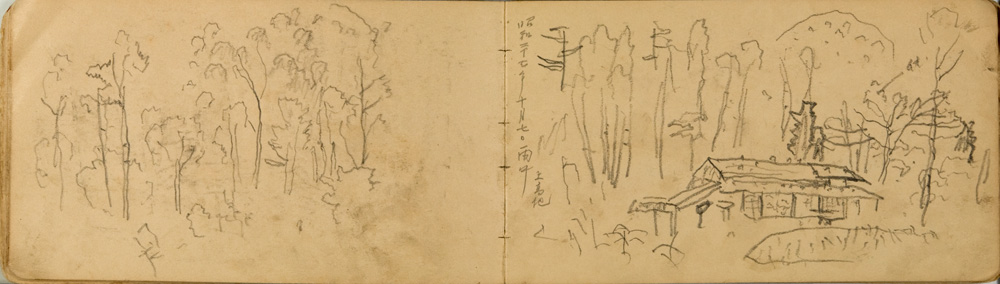 昭和二十七年十月七日雨中
上高地